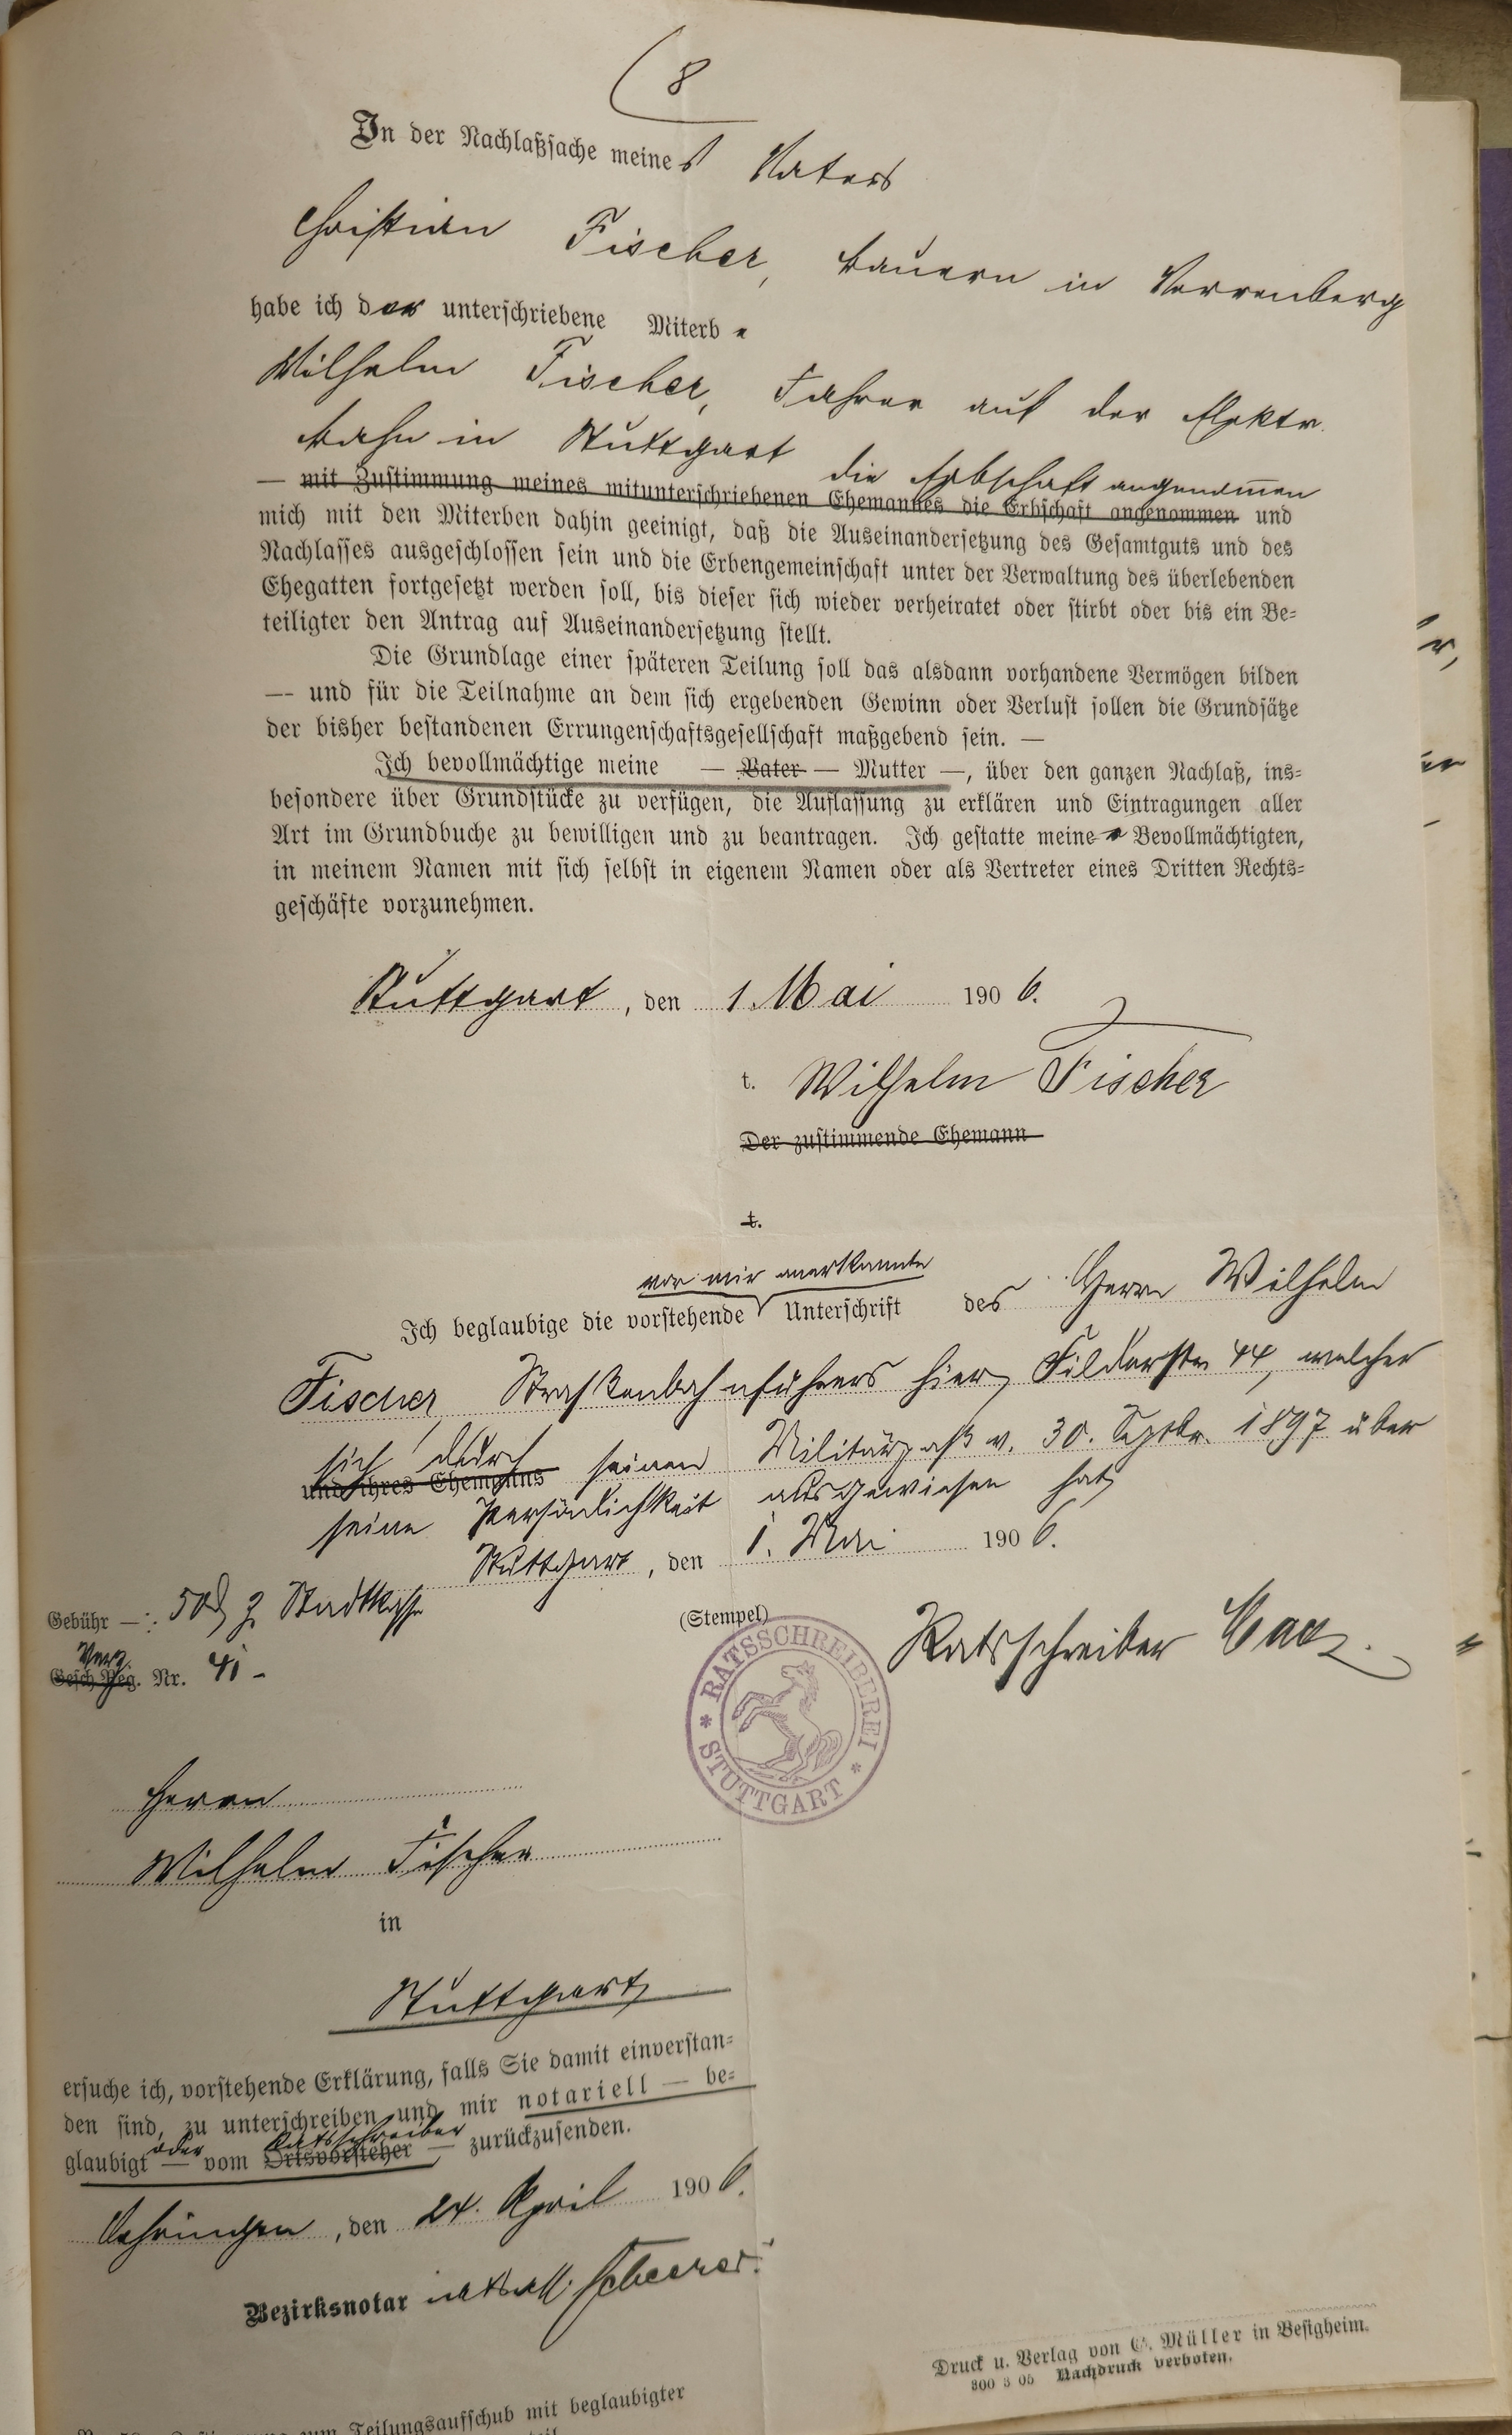 (8
In der Nachlaßsache meines Vaters
Christian Fischer, Bauern in Verrenberg
habe ich der unterschriebene Miterbe
Wilhelm Fischer, Fahrer auf der Elektr.
bahn in Stuttgart die Erbschaft angenommen
— mit Zustimmung meines mitunterschriebenen Ehemannes die Erbschaft angenommen und
mich mit den Miterben dahin geeinigt, daß die Auseinandersetzung des Gesamtguts und des
Nachlasses ausgeschlossen sein und die Erbengemeinschaft unter der Verwaltung des überlebenden
Ehegatten fortgesetzt werden soll, bis dieser sich wieder verheiratet oder stirbt oder bis ein Be-
teiligter den Antrag auf Auseinandersetzung stellt.
Die Grundlage einer späteren Teilung soll das alsdann vorhandene Vermögen bilden
— und für die Teilnahme an dem sich ergebenden Gewinn oder Verlust sollen die Grundsätze
der bisher bestandenen Errungenschaftsgesellschaft maßgebend sein. —
Ich bevollmächtige meine — Vater — Mutter —, über den ganzen Nachlaß, ins-
besondere über Grundstücke zu verfügen, die Auflassung zu erklären und Eintragungen aller
Art im Grundbuche zu bewilligen und zu beantragen. Ich gestatte meiner Bevollmächtigten,
in meinem Namen mit sich selbst in eigenem Namen oder als Vertreter eines Dritten Rechts-
geschäfte vorzunehmen.
Stuttgart, den 1. Mai 1906.
t. Wilhelm Fischer
Der zustimmende Ehemann
t.
vor mir anerkannte
Ich beglaubige die vorstehende Unterschrift des Herrn Wilhelm
Fischer, Straßenbahnführers hier, Filderstr. 44, welcher
sich durch seinen Militärpaß v. 30. Septbr. 1897 über
und ihres Ehemanns
seine Persönlichkeit ausgewiesen hat,
Stuttgart, den 1. Mai 1906.
Gebühr —: 50 ₰ z. Stadtkasse
(Stempel)
Ratsschreiber
Verz.
Gesch.Reg. Nr. 41 -
* RATSSCHREIBEREI * STUTTGART
Herrn
Wilhelm Fischer
in
Stuttgart
ersuche ich, vorstehende Erklärung, falls Sie damit einverstan-
den sind, zu unterschreiben und mir notariell — be-
oder Ratsschreiber
glaubigt — vom Ortsvorsteher — zurückzusenden.
Oehringen, den 24. April 1906.
Bezirksnotar Scheerer.
Druck u. Verlag von C. Müller in Besigheim.
800 3 05 Nachdruck verboten.
Teilungsaufschub mit beglaubigter